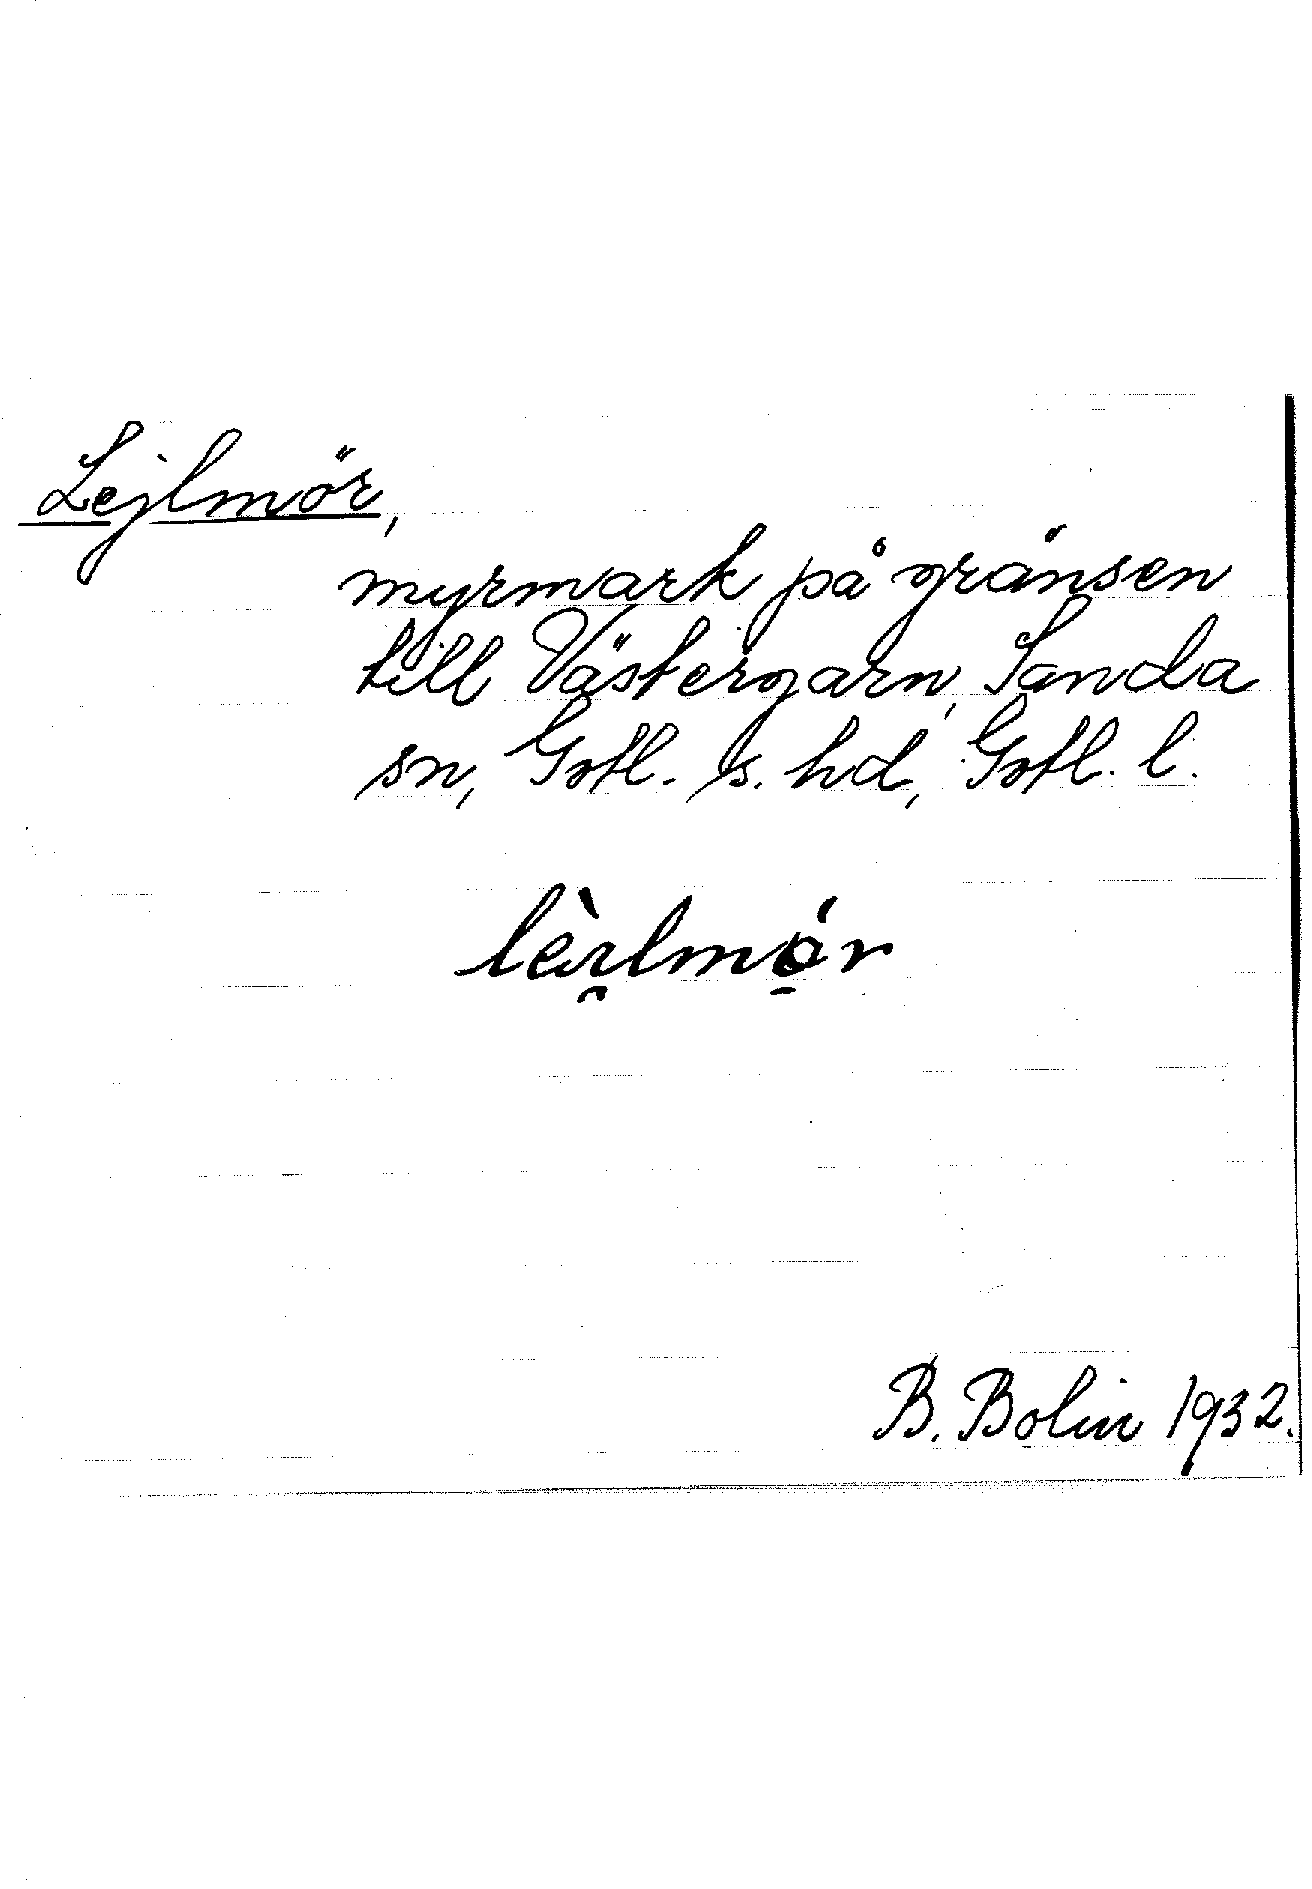 Lejlmör,
myrmark på gränsen
till Västergarn, Sanda
sn, Gotl. s. hd, Gotl. l.
lèi̯lmǫ́r
B. Bolin 1932.